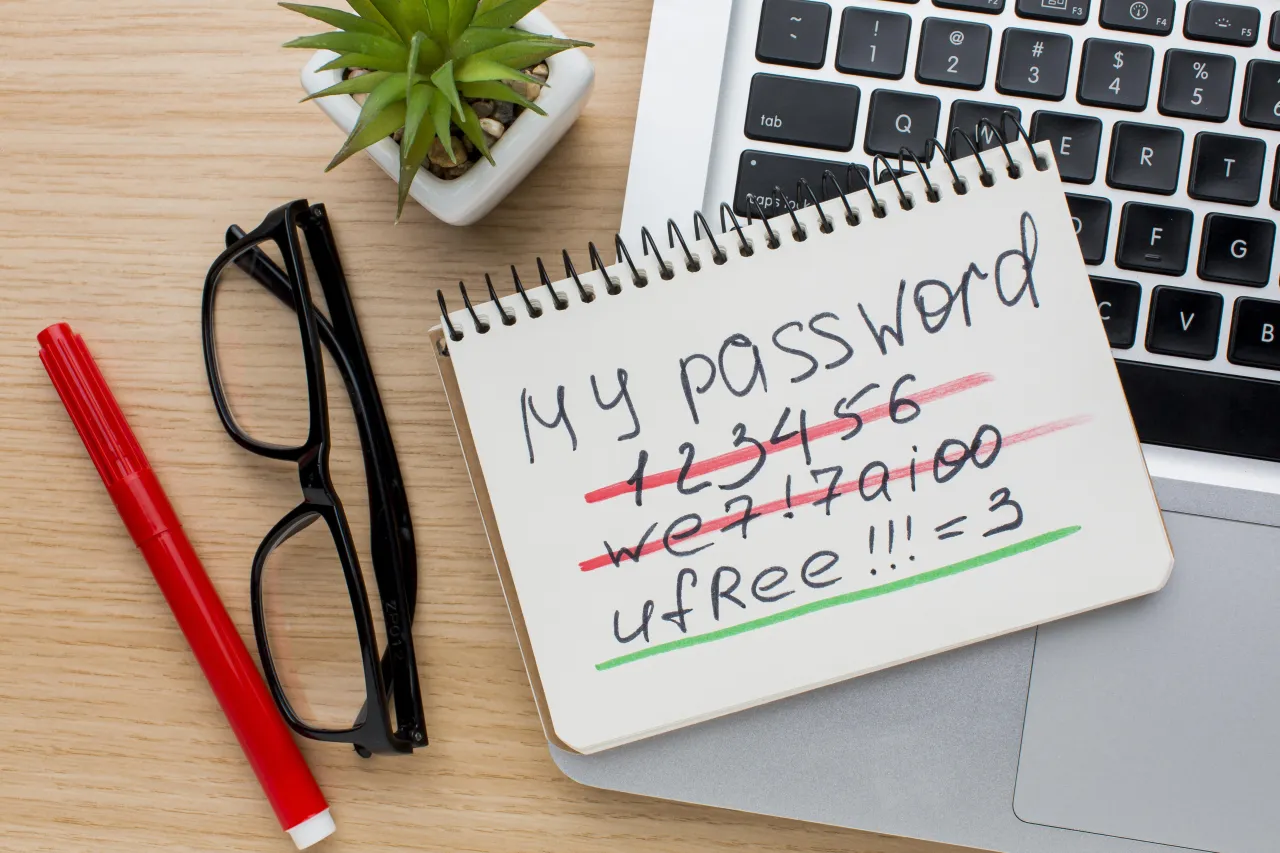 ~
!
1
@
2
#
3
$
4
%
5
F3
F4
F5
tab
Q
W
E
R
T
caps lock
F
G
C
V
B
My password
123456
we7!7aio0
ufRee!!!=3